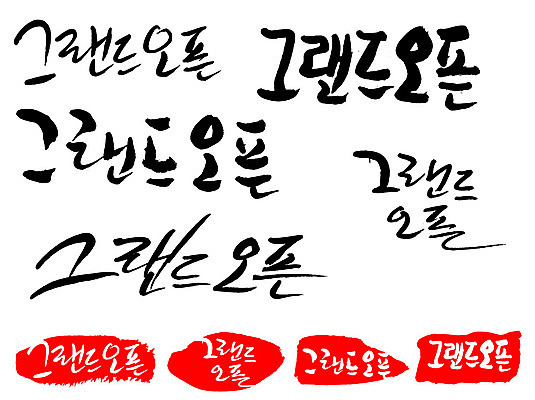 그랜드오픈
그랜드오픈
그랜드오픈
그랜드
오픈
그랜드오픈
그랜드오픈
그랜드
오픈
그랜드오픈
그랜드오픈